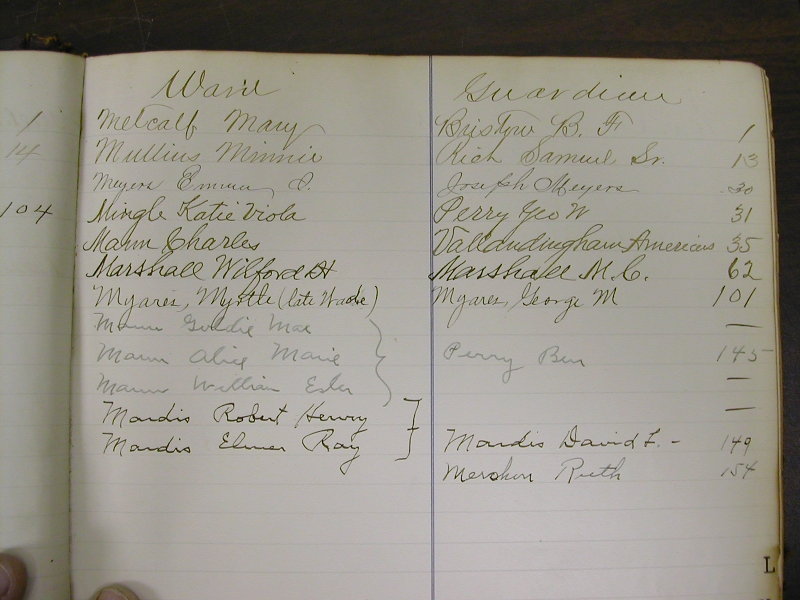 Ward Guardian
1 Metcalf Mary Bristow B. F 1
14 Mullins Minnie Rich Samuel Sr. 13
Meyers Emma J. Joseph Meyers 30
104 Mingle Katie Viola Perry Geo W 31
Mann Charles Vallandingham Americus 35
Marshall Wilford H Marshall M. C. 62
Myares, Myrtle (late Wache) Myares, George M 101
Mann Goldie Mae —
Mann Alice Marie Perry Ben 145
Mann William Esler —
Mardis Robert Henry —
Mardis Elmer Ray Mardis David F. - 149
Mershon Ruth 154
L